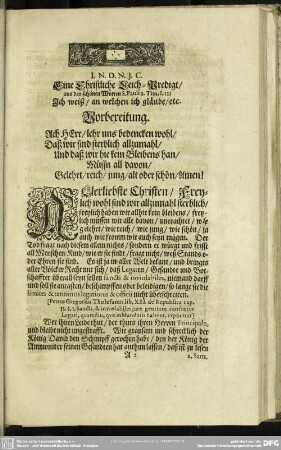 J. N. D. N. J. C.
Eine Christliche Leich-Predigt/
aus den schönen Worten S. Pauli 2. Tim. I, 12:
Ich weiß/ an welchen ich gläube/ etc.
Vorbereitung.
Ach HErr/ lehr uns bedencken wohl/
Daß wir sind sterblich allzumahl/
Und daß wir hie kein Bleibens han/
Müssn all davon/
Gelehrt/ reich/ jung/ alt oder schön/ Amen!
Allerliebste Christen/ Frey-
lich wohl sind wir allzumahl sterblich/
freylich haben wir allhie kein bleibens/ frey-
lich müssen wir alle davon/ unerachtet/ wie
gelehrt/ wie reich/ wie jung/ wie schön/ ja
auch wie fromm wir auch seyn mögen. Der
Tod fragt nach diesem allen nichts/ sondern er würgt und frisst
all Menschen-Kind/ wie er sie findt/ fragt nicht/ wes Stands o-
der Ehren sie sind. Es ist ja in aller Welt bekant/ und bringts
aller Völcker Recht mit sich/ daß Legaten/ Gesandte und Bot-
schaffter überall seyn sollen sancti & inviolabiles, niemand darff
und soll sie antasten/ beschimpffen oder beleidigen/ so lange sie die
limites & terminos legationis & officii nicht überschreiten.
Wer ihnen Leide thut/ der thuts ihren Herren Principaln,
und bleibt nicht ungestrafft. Wie grausam und schrecklich der
König David den Schimpff gerochen habe/ den der König der
Ammoniter seinen Gesandten hat anthun lassen/ das ist zu lesen
2. Sam.